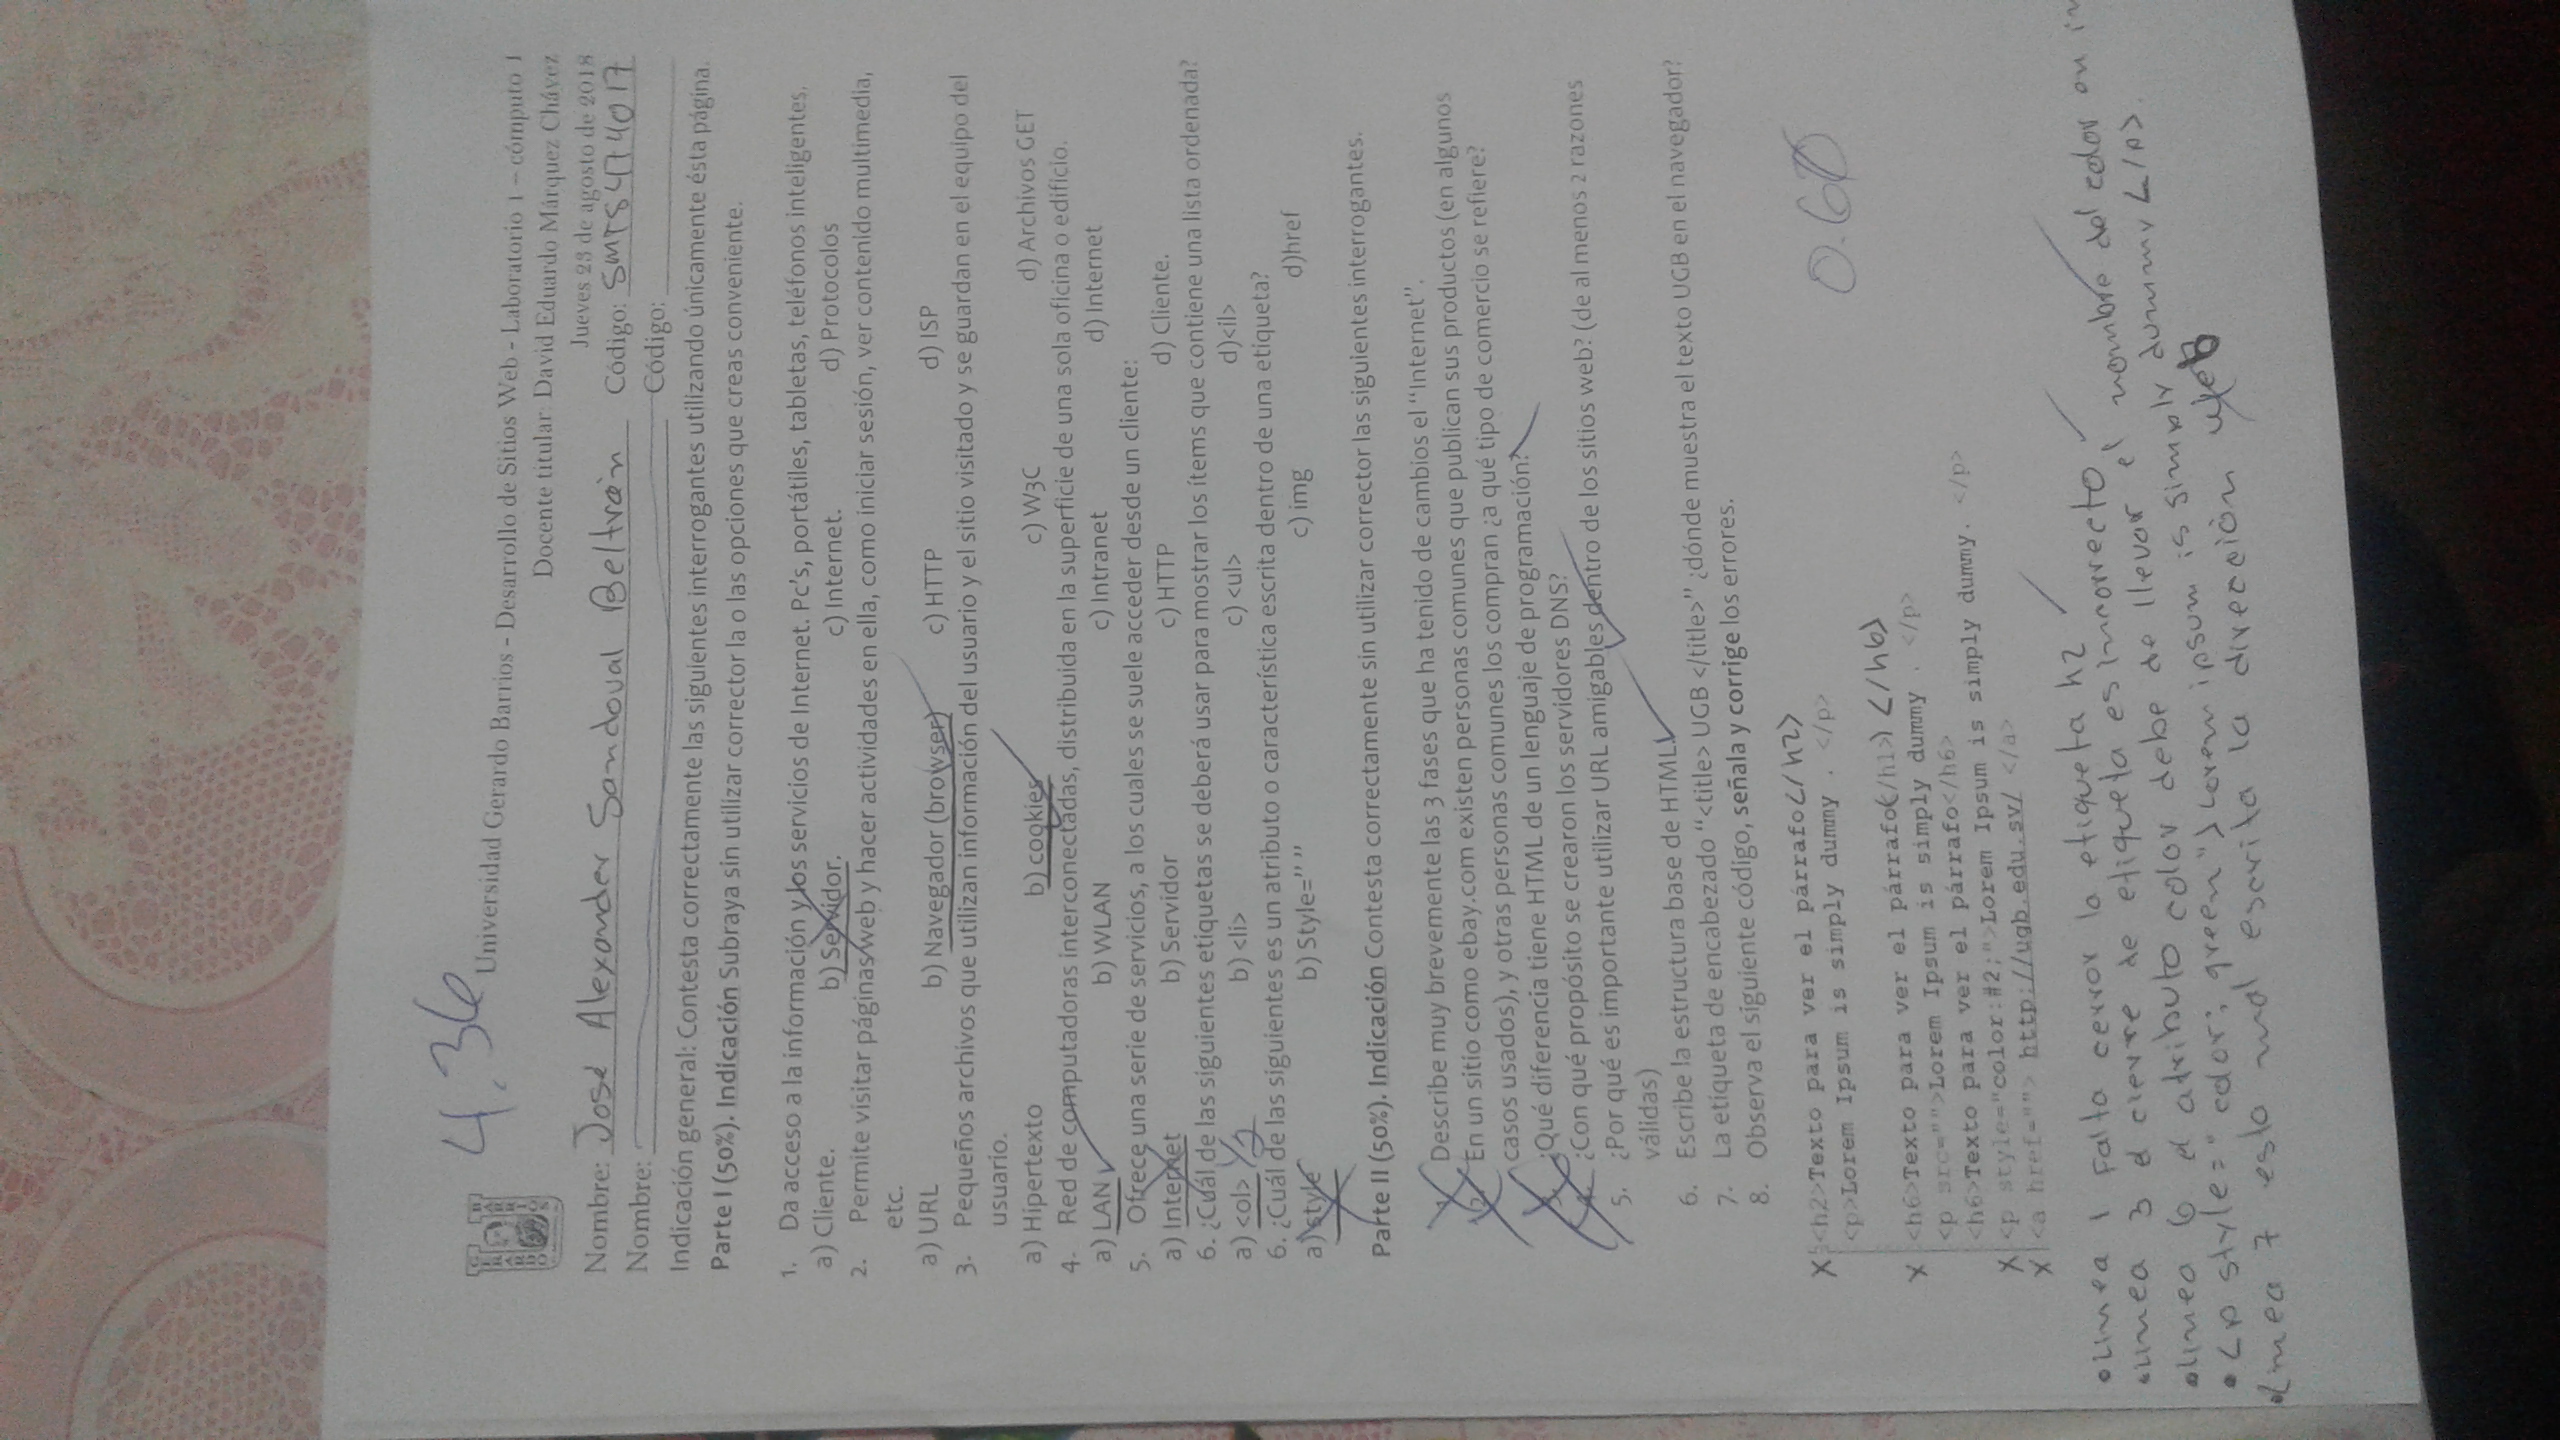 4.36
GERARDO BARRIOS
Universidad Gerardo Barrios - Desarrollo de Sitios Web - Laboratorio 1 – cómputo 1
Docente titular: David Eduardo Márquez Chávez
Jueves 23 de agosto de 2018
Nombre: José Alexander Sandoval Beltrán Código: SMTS474017
Nombre: Código:
Indicación general: Contesta correctamente las siguientes interrogantes utilizando únicamente ésta página.
Parte I (50%). Indicación Subraya sin utilizar corrector la o las opciones que creas conveniente.
1. Da acceso a la información y los servicios de Internet. Pc's, portátiles, tabletas, teléfonos inteligentes.
a) Cliente. b) Servidor. c) Internet. d) Protocolos
2. Permite visitar páginas web y hacer actividades en ella, como iniciar sesión, ver contenido multimedia,
etc.
a) URL b) Navegador (browser) c) HTTP d) ISP
3. Pequeños archivos que utilizan información del usuario y el sitio visitado y se guardan en el equipo del
usuario.
a) Hipertexto b) cookies c) W3C d) Archivos GET
4. Red de computadoras interconectadas, distribuida en la superficie de una sola oficina o edificio.
a) LAN b) WLAN c) Intranet d) Internet
5. Ofrece una serie de servicios, a los cuales se suele acceder desde un cliente:
a) Internet b) Servidor c) HTTP d) Cliente.
6. ¿Cuál de las siguientes etiquetas se deberá usar para mostrar los ítems que contiene una lista ordenada?
a) <ol> 1/2 b) <li> c) <ul> d)<il>
6. ¿Cuál de las siguientes es un atributo o característica escrita dentro de una etiqueta?
a) style b) Style=” ” c) img d)href
Parte II (50%). Indicación Contesta correctamente sin utilizar corrector las siguientes interrogantes.
1. Describe muy brevemente las 3 fases que ha tenido de cambios el “Internet”.
2. En un sitio como ebay.com existen personas comunes que publican sus productos (en algunos
casos usados), y otras personas comunes los compran ¿a qué tipo de comercio se refiere?
3. ¿Qué diferencia tiene HTML de un lenguaje de programación?
4. ¿Con qué propósito se crearon los servidores DNS?
5. ¿Por qué es importante utilizar URL amigables dentro de los sitios web? (de al menos 2 razones
válidas)
6. Escribe la estructura base de HTML.
7. La etiqueta de encabezado “<title> UGB </title>” ¿dónde muestra el texto UGB en el navegador?
8. Observa el siguiente código, señala y corrige los errores.
X <h2>Texto para ver el párrafo </h2>
<p>Lorem Ipsum is simply dummy . </p>
0.60
X <h6>Texto para ver el párrafo(</h1>) </h6>
<p src="">Lorem Ipsum is simply dummy . </p>
<h6>Texto para ver el párrafo</h6>
X <p style="color:#2;">Lorem Ipsum is simply dummy. </p>
X <a href=""> http://ugb.edu.sv/ </a>
• Linea 1 Falta cerrar la etiqueta h2
• Linea 3 el cierre de etiqueta es incorrecto
• linea 6 el atributo color debe de llevar el nombre del color en in
• <p style="color: green"> Lorem ipsum is simply dummy </p>.
• Linea 7 esta mal escrita la dirección web